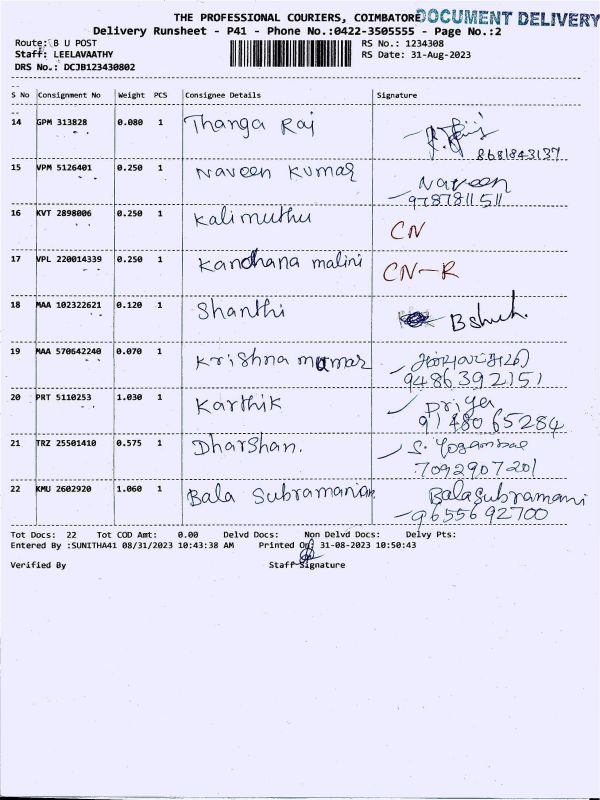 THE PROFESSIONAL COURIERS, COIMBATORE
DOCUMENT DELIVERY
Delivery Runsheet - P41 - Phone No.:0422-3505555 - Page No.:2
Route: B U POST
RS No.: 1234308
Staff: LEELAVAATHY
RS Date: 31-Aug-2023
DRS No.: DCJB123430802
S No Consignment No Weight PCS Consignee Details Signature
14 GPM 313828 0.080 1 Thanga Raj
8681843137
15 VPM 5126401 0.250 1 Naveen Kumar Naveen
9787811511
16 KVT 2898006 0.250 1 Kalimuthu CN
17 VPL 220014339 0.250 1 Kandhana malini CN-R
18 MAA 102322621 0.120 1 Shanthi
19 MAA 570642240 0.070 1 Krishna
9486392151
20 PRT 5110253 1.030 1 Karthik Priya
9148065284
21 TRZ 25501410 0.575 1 Dharshan.
7092907201
22 KMU 2602920 1.060 1 Bala Subramanian Balasubramani
9655692700
Tot Docs: 22 Tot COD Amt: 0.00 Delvd Docs: Non Delvd Docs: Delvy Pts:
Entered By :SUNITHA41 08/31/2023 10:43:38 AM Printed On: 31-08-2023 10:50:43
Verified By Staff Signature